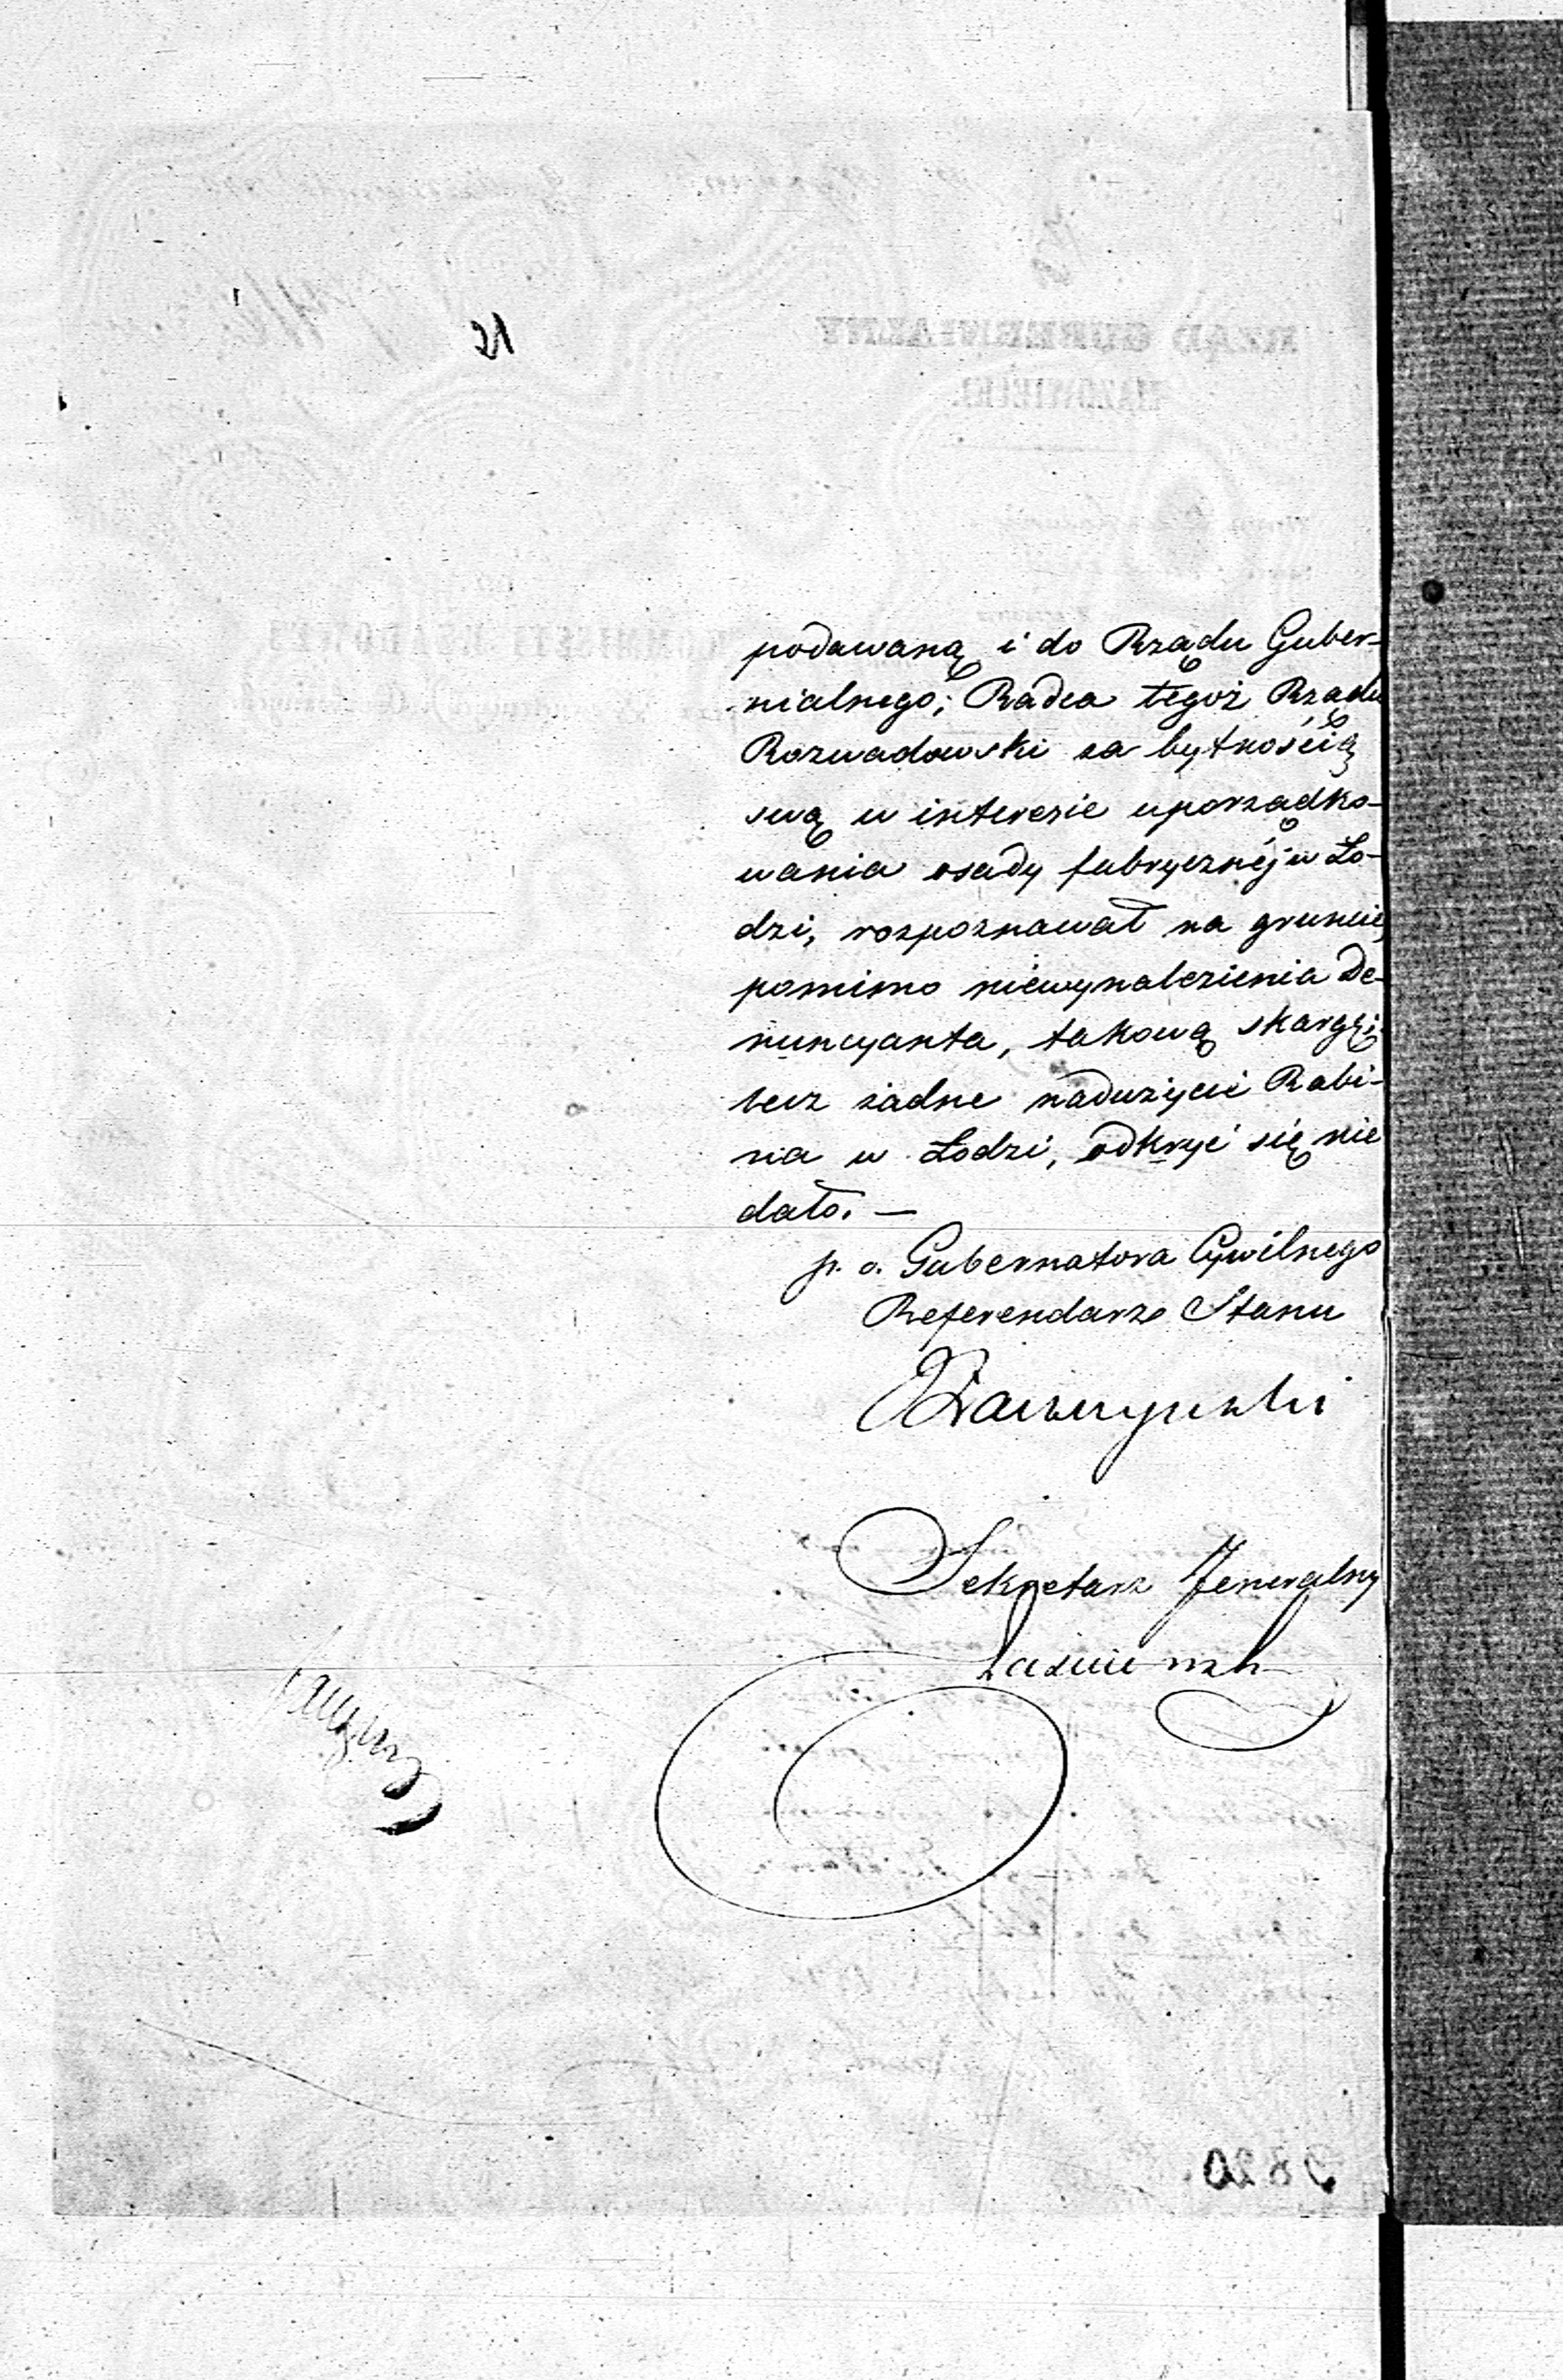 podawaną i do Rządu Guber-
nialnego; Radca tegoż Rządu
Rozwadowski za bytnością
swą w interesie uporządko-
wania osady fabrycznéj w Ło-
dzi, rozpoznawał na gruncie,
pomimo niewynalezienia De-
nuncyanta, takową skargę;
lecz żadne nadużycie Rabi-
na w Łodzi, odkryć się nie
dało. —
p. o. Gubernatora Cywilnego
Referendarz Stanu
Sekretarz Jeneralny